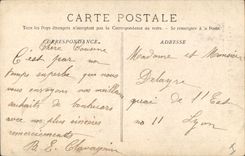 CARTE POSTALE
Tous les Pays étrangers n'acceptent pas la Correspondance au recto. Se renseigner à la Poste
CORRESPONDANCE
ADRESSE
Chère Cousine
C'est par un
temps superbe que nous
vous envoyons nos meilleurs
souhaits de bonheurs
avec nos plus sincères
remerciements
B. E.
Madame et Monsieur
Delaye
quai de l'Est
no 11
Lyon